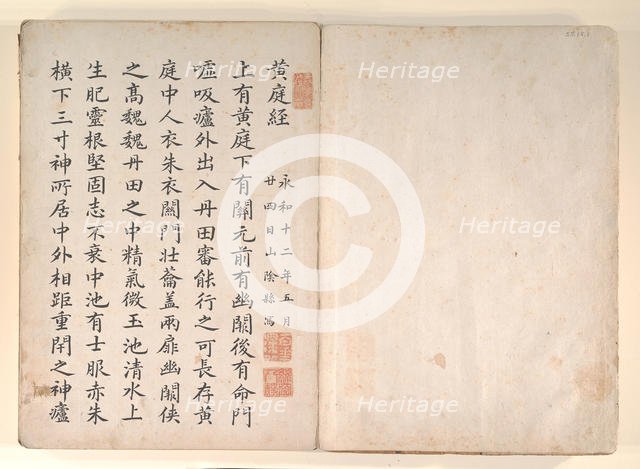 黄庭経
永和十二年五月
廿四日山陰縣寫
上有黄庭下有關元前有幽闕後有命門
嘘吸廬外出入丹田審能行之可長存黄
庭中人衣朱衣關門壯籥盖兩扉幽闕俠
之髙巍巍丹田之中精氣微玉池清水上
生肥靈根堅固志不衰中池有士服赤朱
横下三寸神所居中外相距重閇之神廬
Heritage
Heritage
Heritage
Heritage
Heritage
Heritage